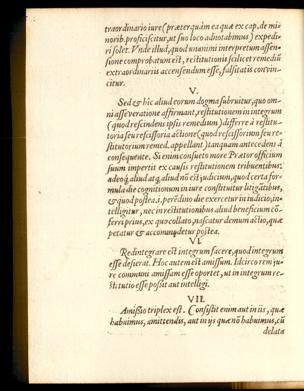 traordinario iure (præterquàm ea quæ ex cap. de mi
norib. proficiscitur, ut suo loco adnotabimus) expedi
ri solet. Vnde illud, quod unanimi interpretum assen
sione comprobatum est, restitutionis scilicet remediũ
extraordinariis accensendum esse, falsitatis convin-
citur.
V.
Sed & hic aliud eorum dogma subruitur, quo om-
ni asseveratione affirmant, restitutionem in integrum
(quod rescindens ipsis remedium) differre à restitu-
toria seu rescissoria actione (quod rescissorium seu re-
stitutorium remed. appellant) tanquam antecedens à
consequente. Si enim consueto more Prætor officium
suum impertit ex causis restitutionem tribuentibus:
adeoq́, aliud atq́, aliud nō est iudicium, quod certa for-
mula die cognitionum in iure constituitur litigātibus,
& quod postea s. perēdino die exercetur in iudicio, in-
telligitur, nec in restitutionibus aliud beneficium cō-
ferri prius, ex quo collato, nascatur demum actio, quæ
petatur & accommodetur postea.
VI.
Redintegrare est integrum facere, quod integrum
esse desierat. Hoc autem est amissum. Idcirco rem ju-
re communi amissam esse oportet, ut in integrum re-
stitutio esse possit aut intelligi.
VII.
Amissio triplex est. Consistit enim aut in iis, quæ
habuimus, amittendis, aut in ijs quæ nō habuimus, cū
delata